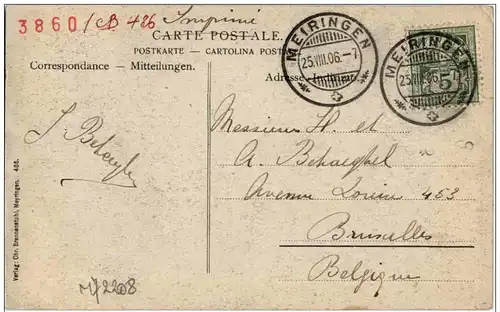 38601 CB 426 Imprimé
CARTE POSTALE.
POSTKARTE - CARTOLINA POSTALE
Correspondance - Mitteilungen.
Adresse - Indirizzo.
MEIRINGEN
25.VIII.06.-7
MEIRINGEN
25.VIII.06.-7
5
Messieurs H. et
A. Behaeghel
Avenue Louise 453
Bruxelles
Belgique
J. Behaeghel
Verlag: Chr. Brennenstuhl, Meyringen. 486.
2208